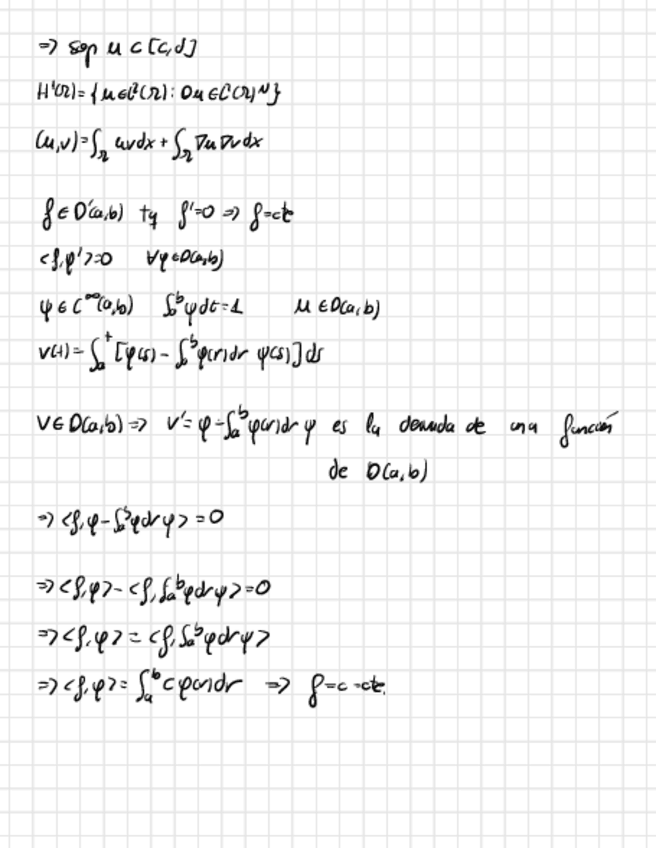 => sop u ⊂ [c,d]
H¹(Ω)={u∈L²(Ω): ∇u∈L²(Ω)ᴺ}
(u,v)=∫_Ω uvdx + ∫_Ω ∇u ∇vdx
f∈D'(a,b) tq f'=0 => f=cte
<f,φ'>=0 ∀φ∈D(a,b)
ψ∈C^∞(a,b) ∫_a^b ψdt=1 u∈D(a,b)
v(t)=∫_a^t [φ(s)-∫_a^b φ(r)dr ψ(s)]ds
V∈D(a,b) => v'=φ-∫_a^b φ(r)dr ψ es la derivada de una función
de D(a,b)
=> <f,φ-∫_a^b φdr ψ>=0
=> <f,φ>-<f,∫_a^b φdr ψ>=0
=> <f,φ>=<f,∫_a^b φdr ψ>
=> <f,φ>=∫_a^b c φ(r)dr => f=c=cte.